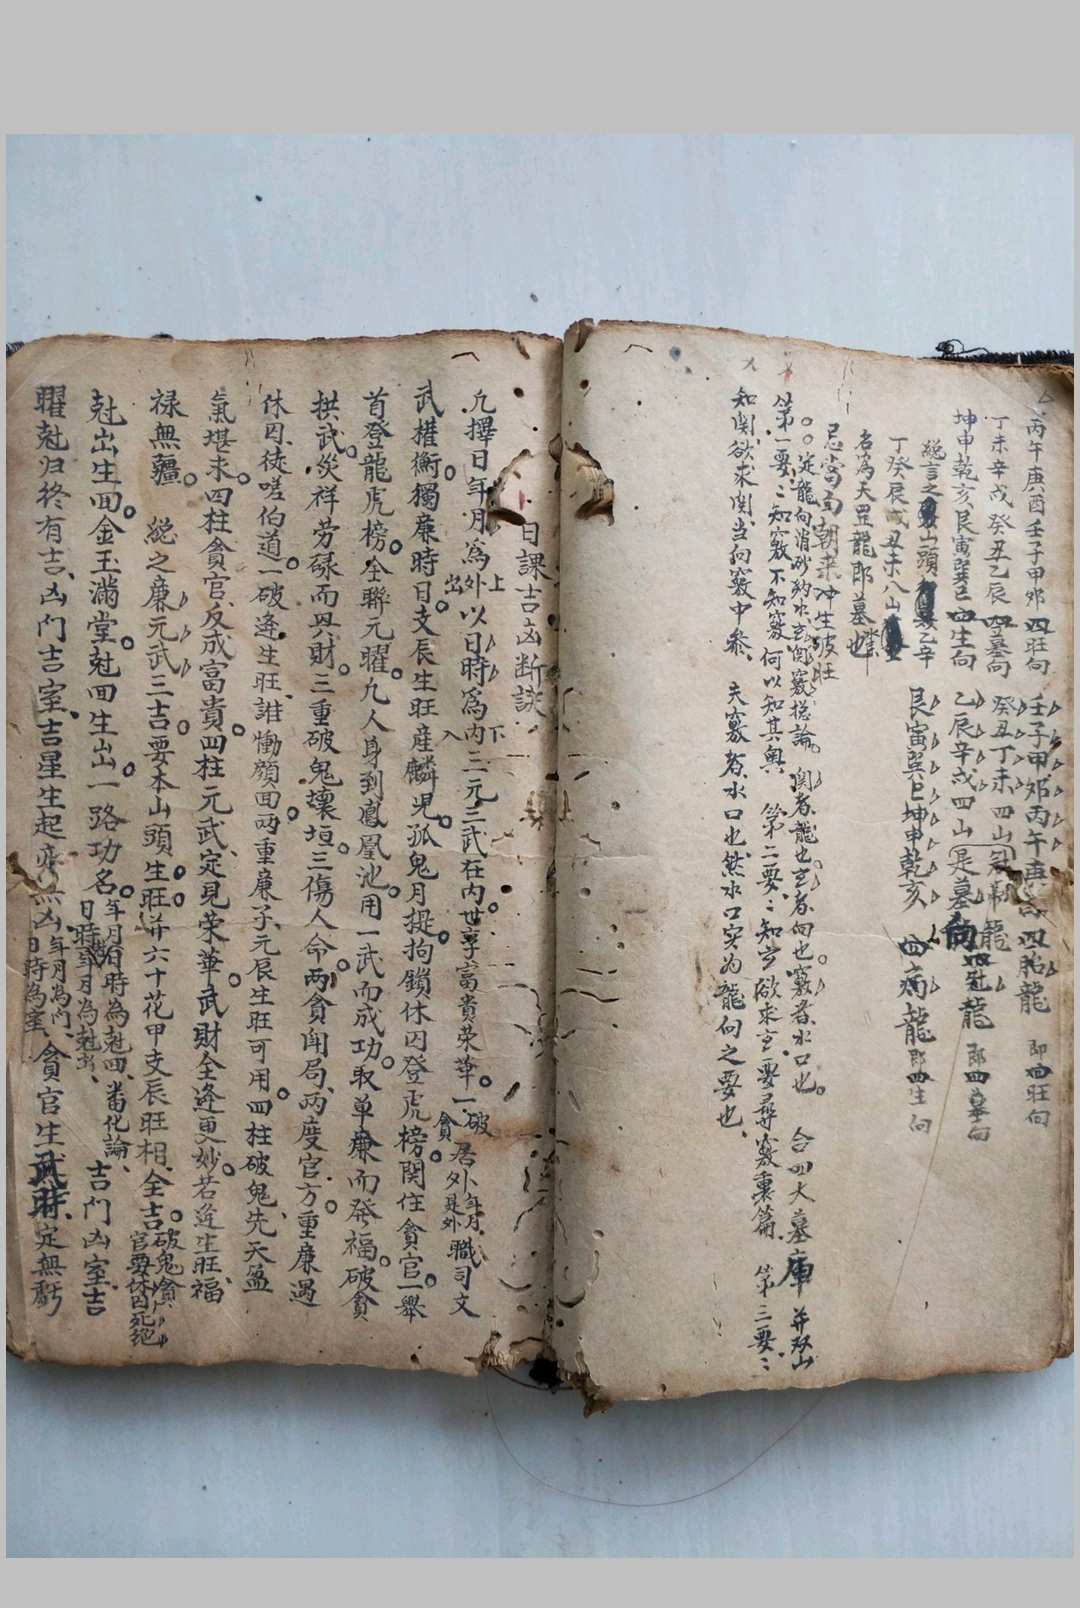 丙午庚酉壬子甲卯四旺向 壬子甲卯丙午庚酉四胎龍 即四旺向
丁未辛戌癸丑乙辰四墓向 癸丑丁未四山冠帶龍
坤申乾亥艮寅巽巳四生向 乙辰辛戌四山是墓向四龍 即四墓向
總言之山頭乙辛 艮寅巽巳坤申乾亥 四病龍即四生向
丁癸辰戌丑未八山
名為天罡龍即墓也
忌當面朝來冲生破旺
定龍向消砂納水玄関竅总論 関者龍也玄者向也竅者水口也 合四大墓庫並双山
第一要：知竅不知竅何以知其奥 第二要：知玄欲求玄要尋竅裏篇 第三要：
知関欲求関当向竅中参 夫竅者水口也然水口实为龍向之要也
日課吉凶断訣
凡擇日年月為外上出以日時為內下入三元三武在內世享富貴荣華一破貪居外年月是外職司文
武權衡獨廉時日支辰生旺産麟児孤鬼月提拘鎖休囚登虎榜関住貪官一舉
首登龍虎榜全聯元曜九人身到鳳凰池用一武而成功取单廉而發福破貪
拱武災祥劳碌而興財三重破鬼壞垣三傷人命兩貪闱局两度官方重廉遇
休囚徒嗟伯道一破逢生旺誰慟顏回两重廉子元辰生旺可用四柱破鬼先天盈
氣堪求四柱貪官反成富貴四柱元武定見荣華武財全逢更妙若逢生旺福
禄無疆 総之廉元武三吉要本山頭生旺并六十花甲支辰旺相全吉破鬼貪官要休囚死绝
尅出生回金玉滿堂尅回生出一路功名年月日時為尅回日時年月為尅出畨化論吉門凶室吉
曜尅归終有吉凶门吉室吉星生起亦無凶年月為门日時為室貪官生武財定無虧